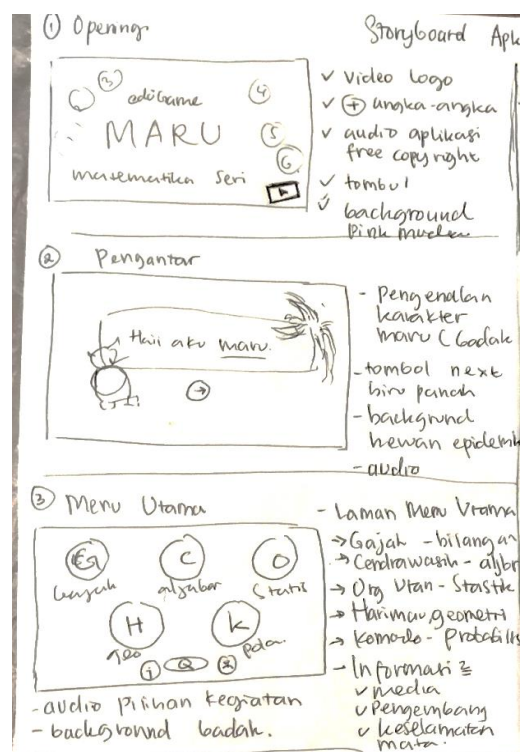 ① Opening
Storyboard Apk
③
④
edugame
MARU
⑤
⑥
matematika seri
✓ Video Logo
✓ + angka-angka
✓ audio aplikasi
free copyright
✓ tombol
✓ background
Pink muda
② Pengantar
Haii aku maru.
- Pengenalan
karakter
maru (badak
- tombol next
biru panah
- background
hewan epidemik
- audio
③ Menu Utama
G
C
O
Gajah
aljabar
Statis
H
K
Geo
i
Q
- audio pilihan kegiatan
- background badak.
- Laman Menu Utama
→ Gajah - bilangan
→ Cendrawasih - aljbr
→ Org Utan - Stastk
→ Harimau, geometri
→ Komodo - Probabilis
- Informasi
✓ media
✓ Pengembang
✓ keselamatan
mata.